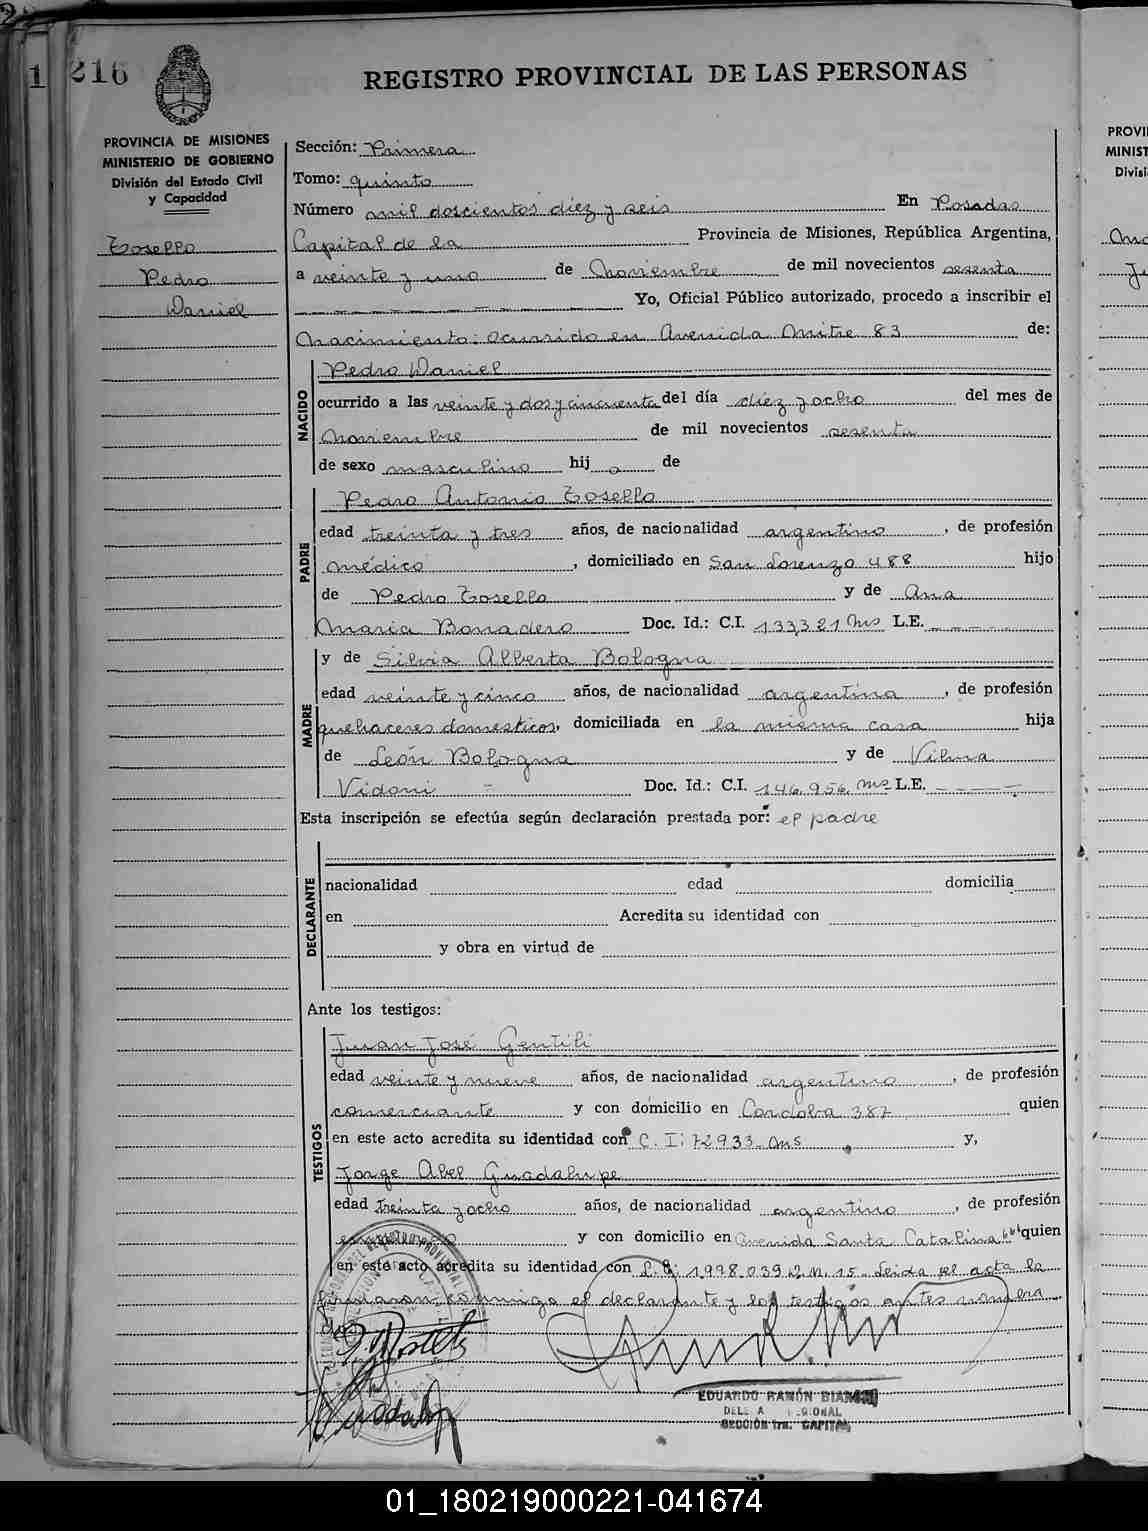 216
REGISTRO PROVINCIAL DE LAS PERSONAS
PROVINCIA DE MISIONES
MINISTERIO DE GOBIERNO
División del Estado Civil
y Capacidad
Tosello
Pedro
Daniel
Sección: Primera
Tomo: quinto
Número mil doscientos diez y seis En Posadas
Capital de la Provincia de Misiones, República Argentina,
a veinte y uno de Noviembre de mil novecientos sesenta
Yo, Oficial Público autorizado, procedo a inscribir el
Nacimiento: ocurrido en Avenida Mitre 83 de:
NACIDO
Pedro Daniel
ocurrido a las veinte y dos y cincuenta del día diez y ocho del mes de
Noviembre de mil novecientos sesenta
de sexo masculino hij o de
PADRE
Pedro Antonio Tosello
edad treinta y tres años, de nacionalidad argentino, de profesión
médico, domiciliado en San Lorenzo 488 hijo
de Pedro Tosello y de Ana
María Bonadero Doc. Id.: C.I. 133321 Ms L.E.
MADRE
y de Silvia Alberta Bologna
edad veinte y cinco años, de nacionalidad argentina, de profesión
quehaceres domesticos, domiciliada en la misma casa hija
de León Bologna y de Vilma
Vidoni Doc. Id.: C.I. 146.956 Ms L.E.
Esta inscripción se efectúa según declaración prestada por: el padre
DECLARANTE
nacionalidad edad domicilia
en Acredita su identidad con
y obra en virtud de
Ante los testigos:
TESTIGOS
Juan José Gentili
edad veinte y nueve años, de nacionalidad argentino, de profesión
comerciante y con domicilio en Cordoba 387 quien
en este acto acredita su identidad con C. I: 72933 Ms y,
Jorge Abel Guadalupe
edad treinta y ocho años, de nacionalidad argentino, de profesión
y con domicilio en Avenida Santa Catalina quien
en este acto acredita su identidad con L. E: 1.998.039 D. M. 15. Leida el acta la
firmaron conmigo el declarante y los testigos antes nombra
dos
EDUARDO RAMÓN
SECCIÓN 1ra. CAPITAL
PROVI
MINIST
Divisi
01_180219000221-041674